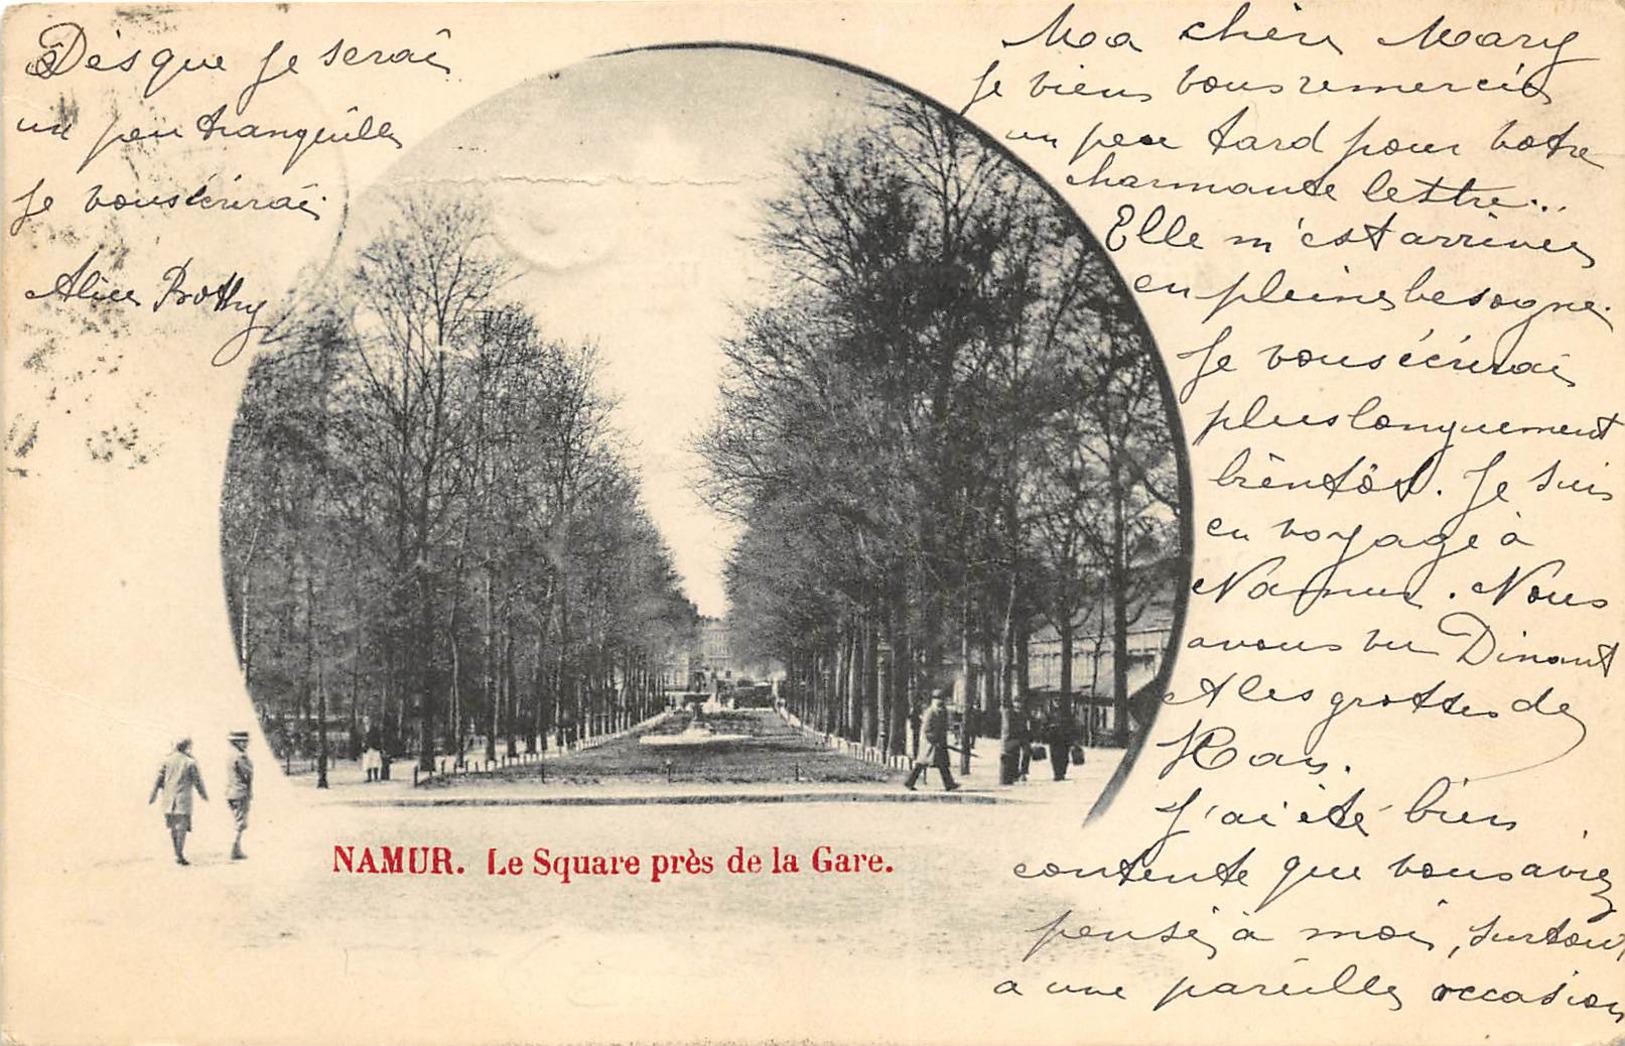 Ma chère Mary
Je viens vous remercier
un peu tard pour votre
charmante lettre...
Elle m'est arrivée
en pleine besogne.
Je vous écrirai
plus longuement
bientôt. Je suis
en voyage à
Namur. Nous
avons vu Dinant
et les grottes de
Han.
J'ai été bien
contente que vous aviez
pensé à moi, surtout
a une pareille occasion
Dès que je serai
un peu tranquille
je vous écrirai
Alice
NAMUR. Le Square près de la Gare.